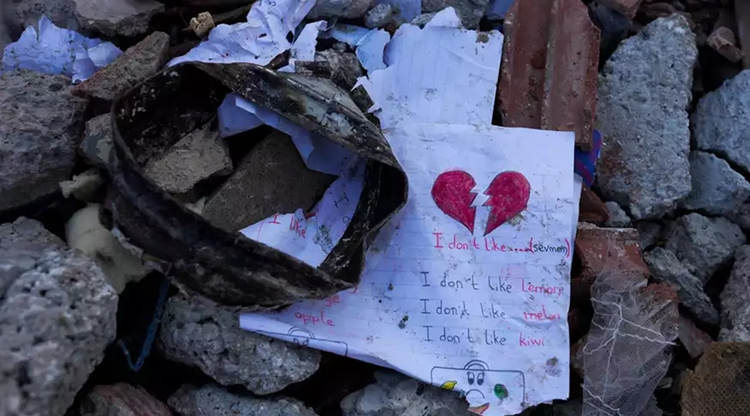 I like
I don't like.....(sevmem)
I don't like Lemon
I don't like melon
I don't like kiwi
apple